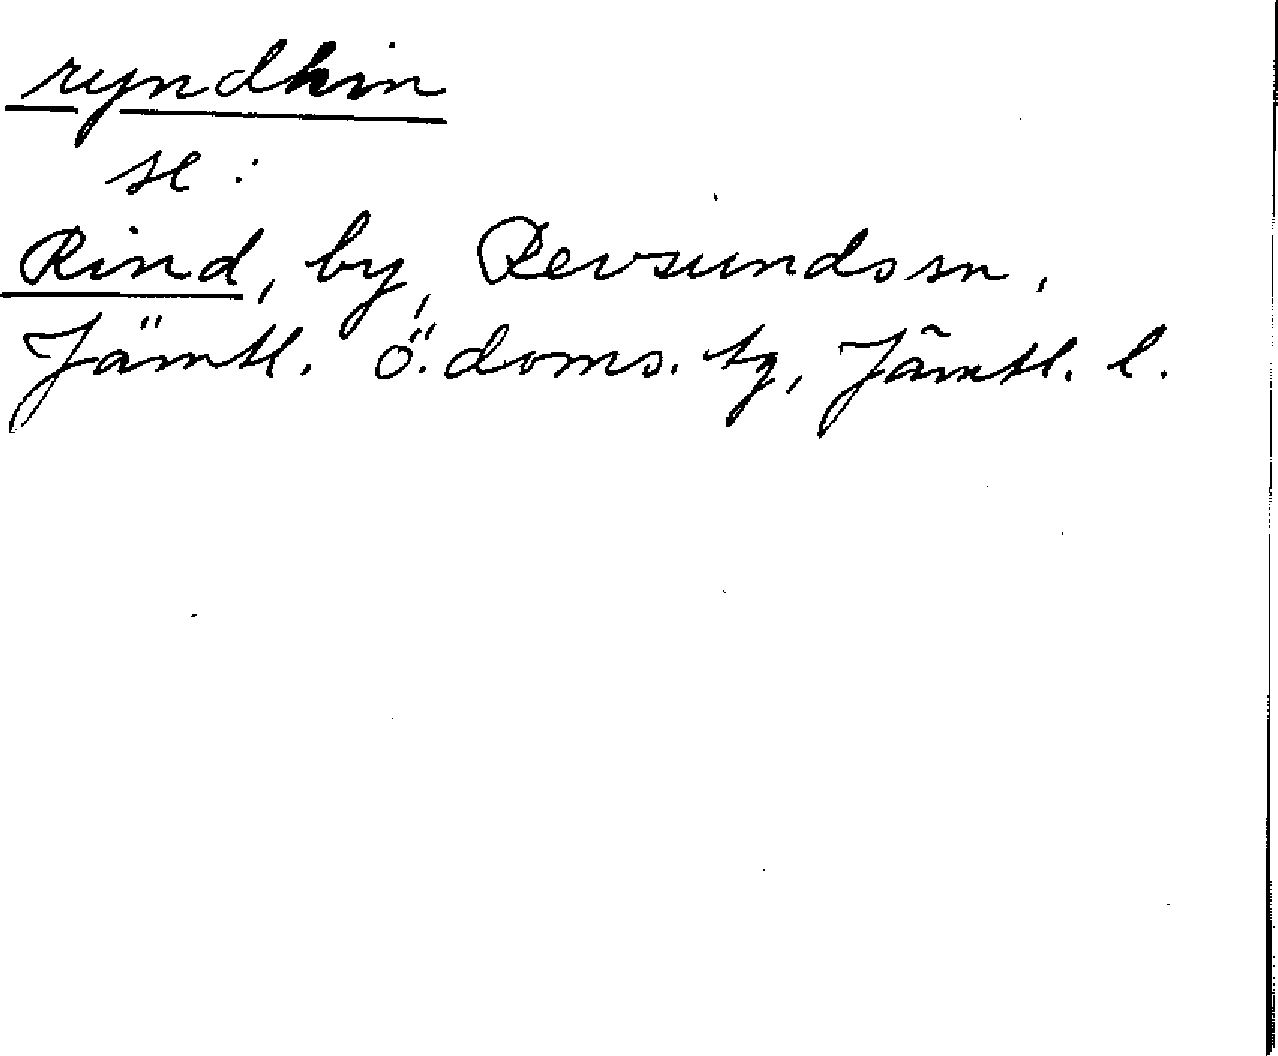 ryndhin
se:
Rind, by, Revsunds sn,
Jämtl. ö. doms. tg, Jämtl. l.